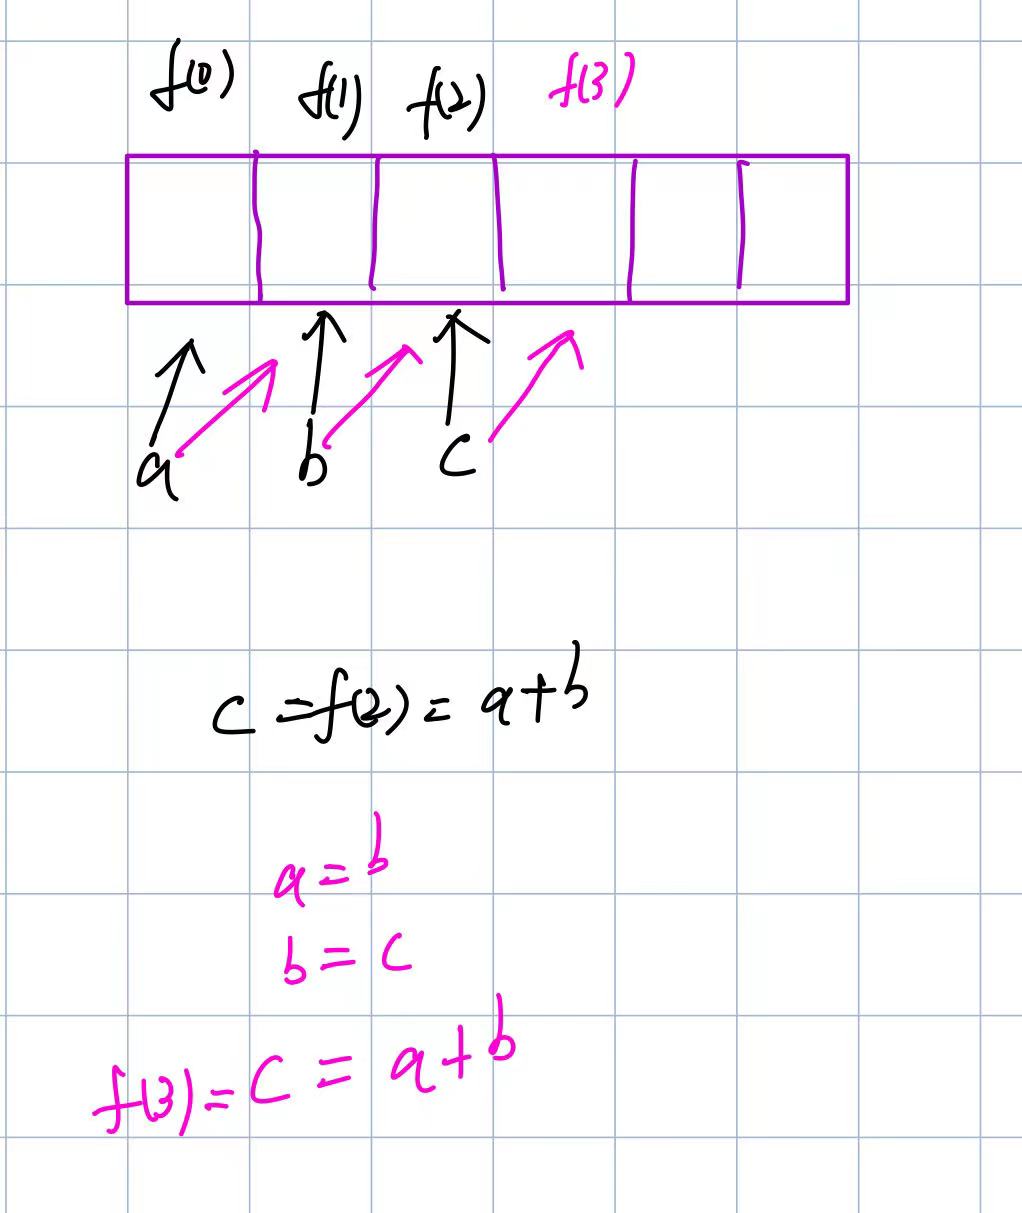 f(0) f(1) f(2) f(3)
a b c
c = f(2) = a+b
a = b
b = c
f(3) = c = a+b